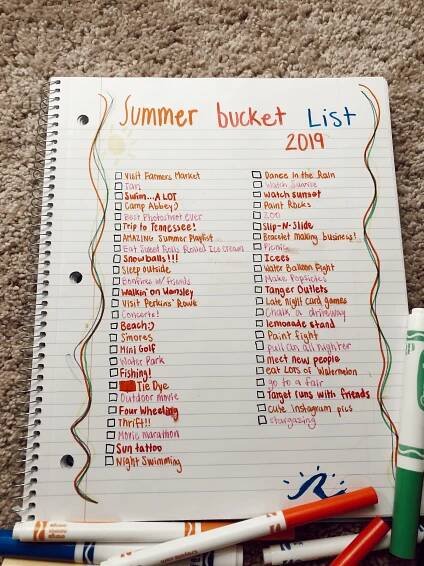 Summer bucket List
2019
Visit Farmers Market
Tan
Swim...A LOT
Camp Abbey:)
Best Photoshoot Ever
Trip to Tennessee!
AMAZING Summer Playlist
Eat Sweet Rolls Rolled Ice Cream
Snowballs!!!
Sleep outside
Bonfires w/ friends
Walkin' on Wansley
Visit Perkins Rowe
Concerts!
Beach:)
S'mores
Mini Golf
Water Park
Fishing!
Tie Dye
Outdoor movie
Four Wheeling
Thrift!!
Movie marathon
Sun tattoo
Night Swimming
Dance In the Rain
Watch Sunrise
Watch sunset
Paint Rocks
ZOO
Slip-N-Slide
Bracelet making business!
Picnic
Icees
Water Balloon Fight
Make Popsicles
Tanger Outlets
Late night card games
Chalk a driveway
lemonade stand
Paint fight
pull an all nighter
meet new people
eat LOTS of Watermelon
go to a fair
Target runs with friends
cute Instagram pics
stargazing